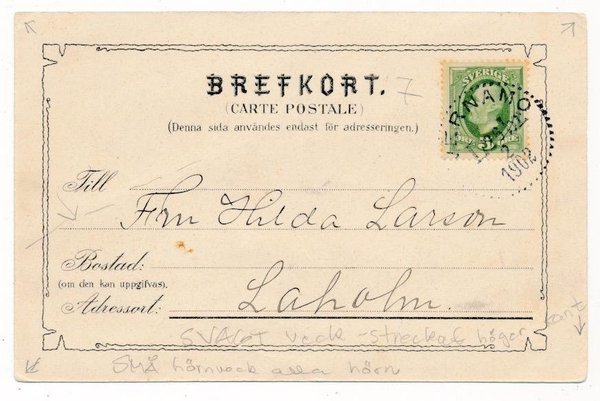 BREFKORT.
7
(CARTE POSTALE)
(Denna sida användes endast för adresseringen.)
SVERIGE
VERNAMO
1902
Till
Fru Hilda Larson
Bostad:
(om den kan uppgifvas).
Adressort:
Laholm.
SVAGT veck - streckat höger kant
SMÅ hörnveck alla hörn